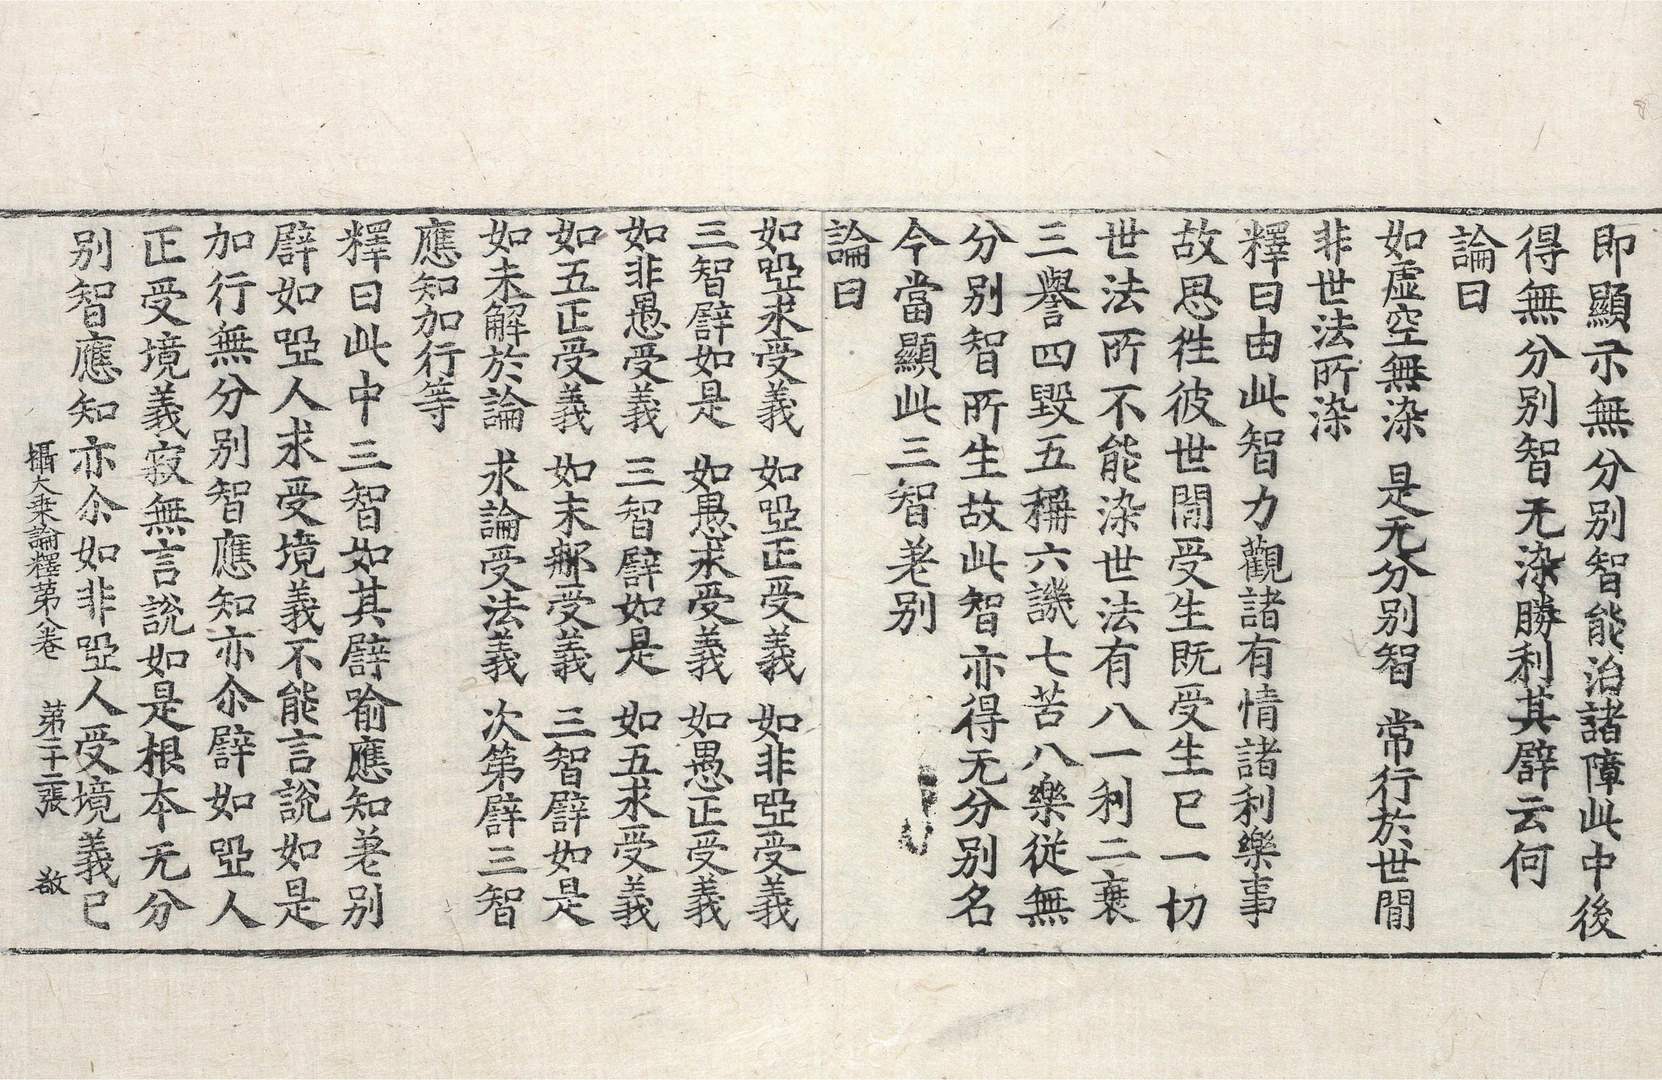 即顯示無分別智能治諸障此中後
得無分別智无染勝利其譬云何
論曰
如虛空無染 是无分別智 常行於世間
非世法所染
釋曰由此智力觀諸有情諸利樂事
故思徃彼世間受生既受生已一切
世法所不能染世法有八一利二衰
三譽四毀五稱六譏七苦八樂從無
分別智所生故此智亦得无分別名
今當顯此三智差別
論曰
如啞求受義 如啞正受義 如非啞受義
三智譬如是 如愚求受義 如愚正受義
如非愚受義 三智譬如是 如五求受義
如五正受義 如末那受義 三智譬如是
如未解於論 求論受法義 次第譬三智
應知加行等
釋曰此中三智如其譬喻應知差別
譬如啞人求受境義不能言說如是
加行無分別智應知亦尒譬如啞人
正受境義寂無言說如是根本无分
別智應知亦尒如非啞人受境義已
攝大乗論釋苐八卷 苐二十二張 敬